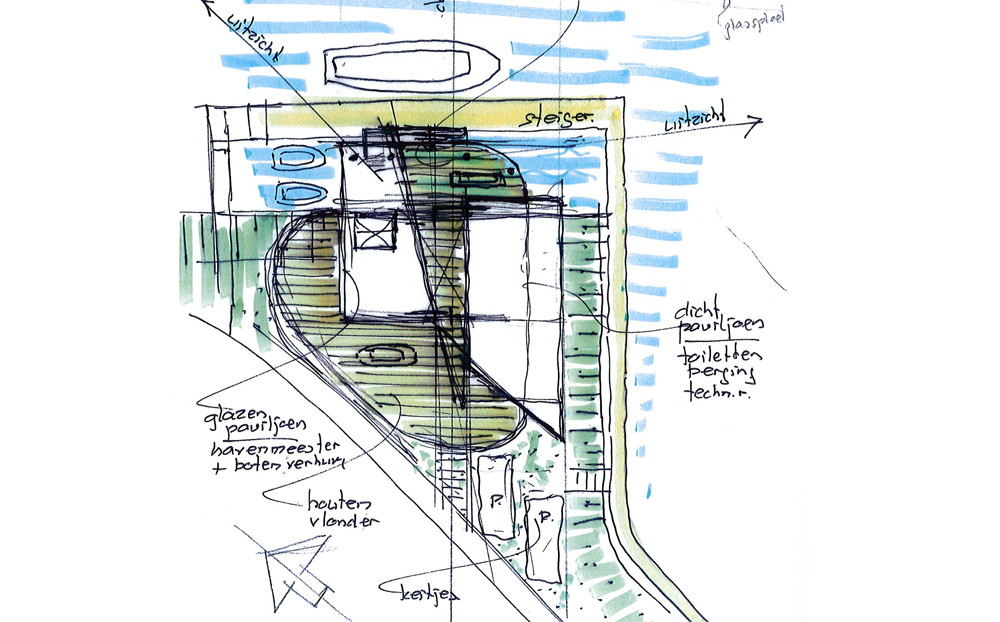 uitzicht
glasspleet
steiger.
uitzicht
dicht
paviljoen
toiletten
berging
techn.r.
glazen
paviljoen
havenmeester
+ botenverhuur
houten
vlonder
P.
P.
kertjes